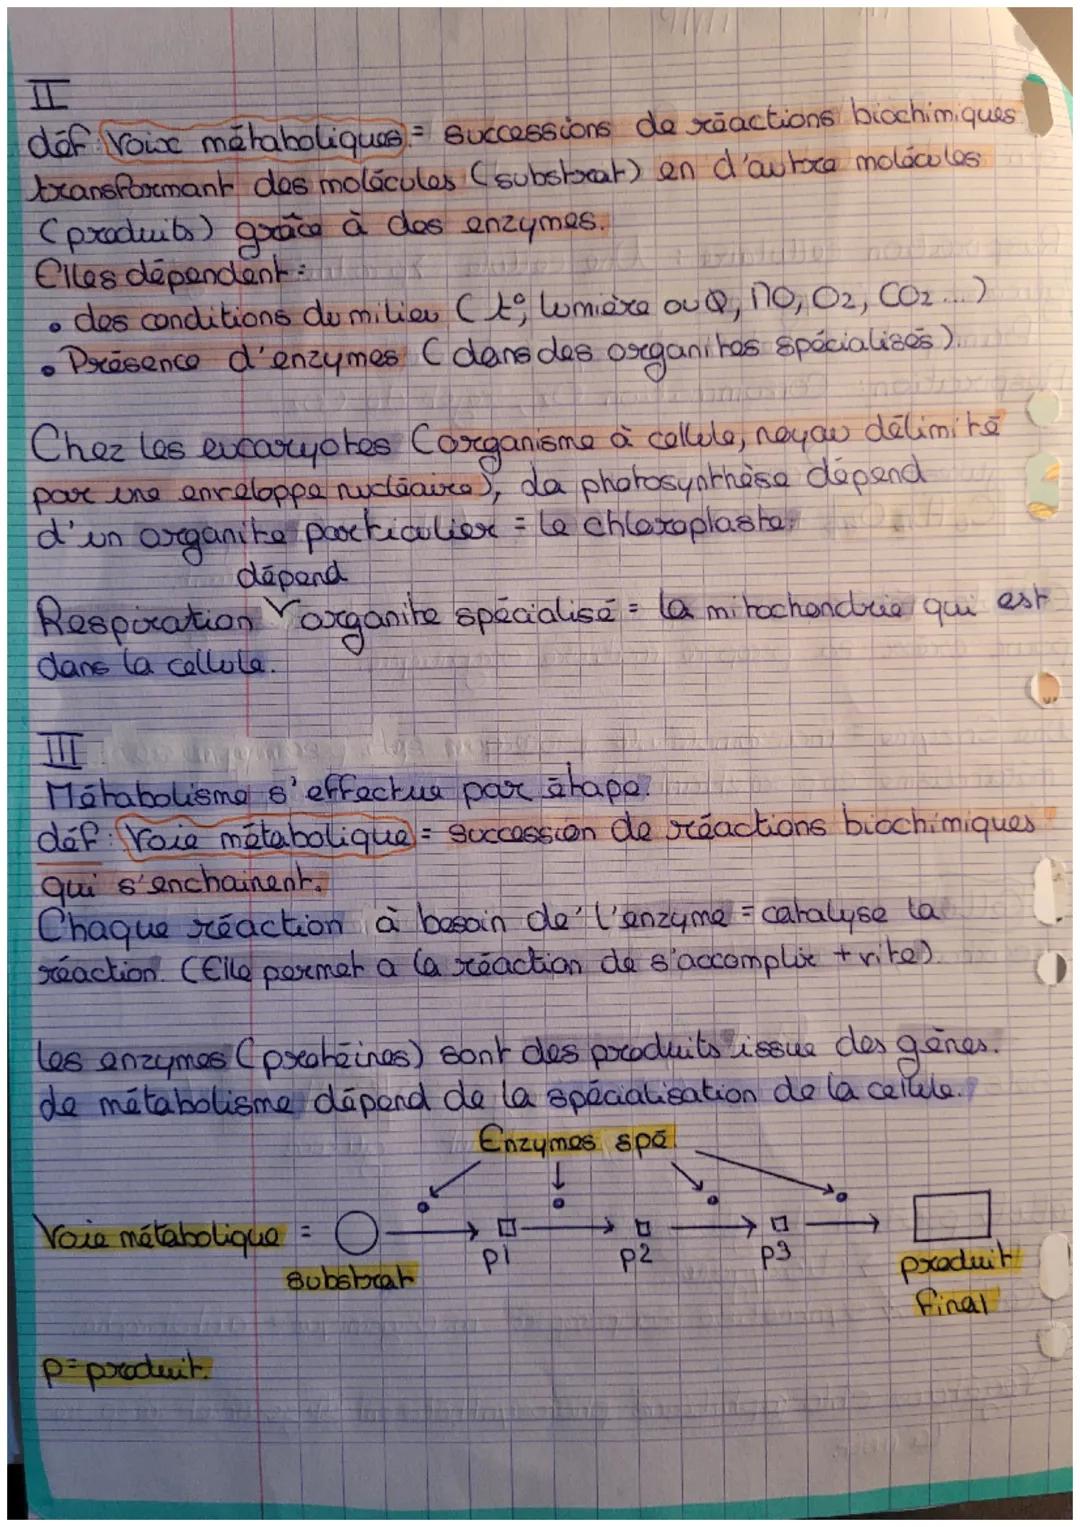 II
déf: Voix métaboliques = successions de réactions biochimiques
transformant des molécules (substrat) en d'autre molécules
(produits) grâce à des enzymes.
Elles dépendent :
• des conditions du milieu ( t°, lumière ou Ø, MO, O2, CO2 ...)
• Présence d'enzymes (dans des organites spécialisés).
Chez les eucaryotes (organisme à cellule, noyau délimité
par une enveloppe nucléaire), la photosynthèse dépend
d'un organite particulier = le chloroplaste.
dépend
Respiration Y organite spécialisé = la mitochondrie qui est
dans la cellule.
III
Métabolisme s'effectue par étape.
déf: Voie métabolique = succession de réactions biochimiques
qui s'enchainent.
Chaque réaction à besoin de l'enzyme = catalyse la
réaction. (Elle permet a la réaction de s'accomplir + vite).
les enzymes (protéines) sont des produits issue des gènes.
Le métabolisme dépend de la spécialisation de la cellule.
Enzymes spé
Voie métabolique =
substrat
p1
p2
p3
produit
final
p = produit.